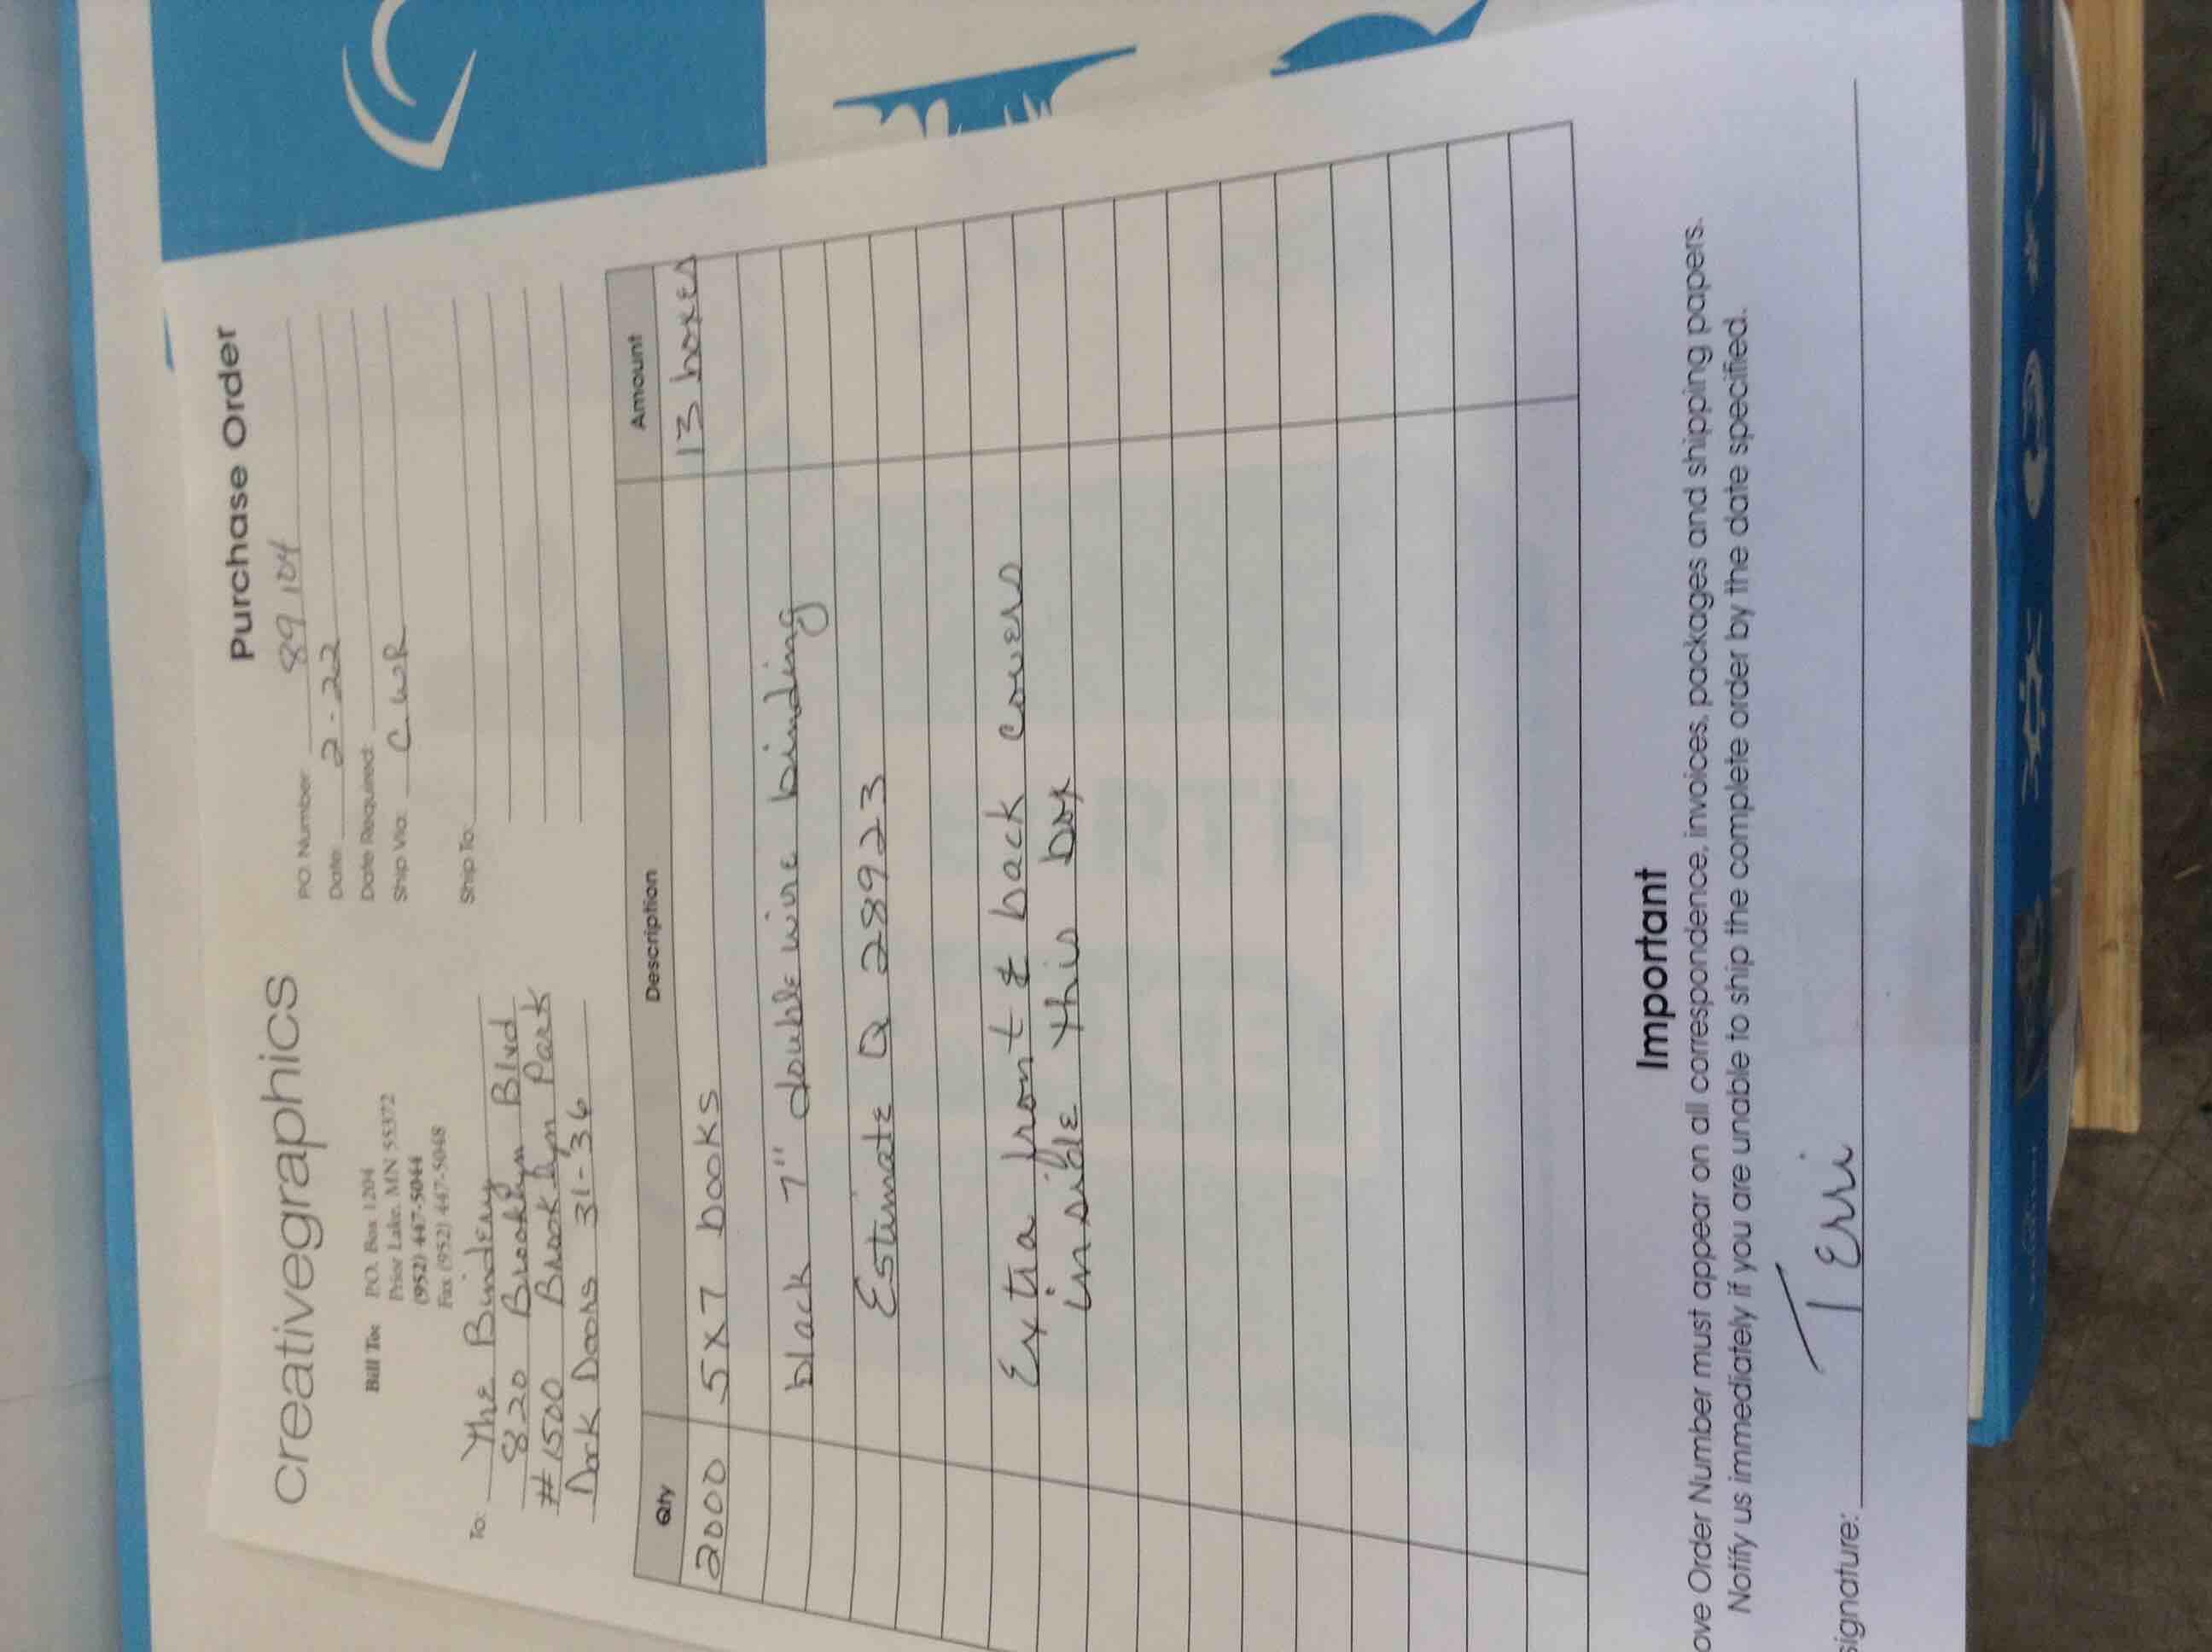 creativegraphics
Purchase Order
Bill To: P.O. Box 1204
Prior Lake, MN 55372
(952) 447-5044
Fax (952) 447-5048
P.O. Number: 89104
Date: 2-22
Date Required:
Ship Via: CWR
Ship To:
To: The Bindery
8820 Brooklyn Blvd
#1500 Brooklyn Park
Dock Doors 31-36
Qty Description Amount
2000 5x7 books 13 boxes
black 7" double wire binding
Estimate Q 28923
Extra front & back covers
inside this box
Important
ove Order Number must appear on all correspondence, invoices, packages and shipping papers.
Notify us immediately if you are unable to ship the complete order by the date specified.
signature: Terri